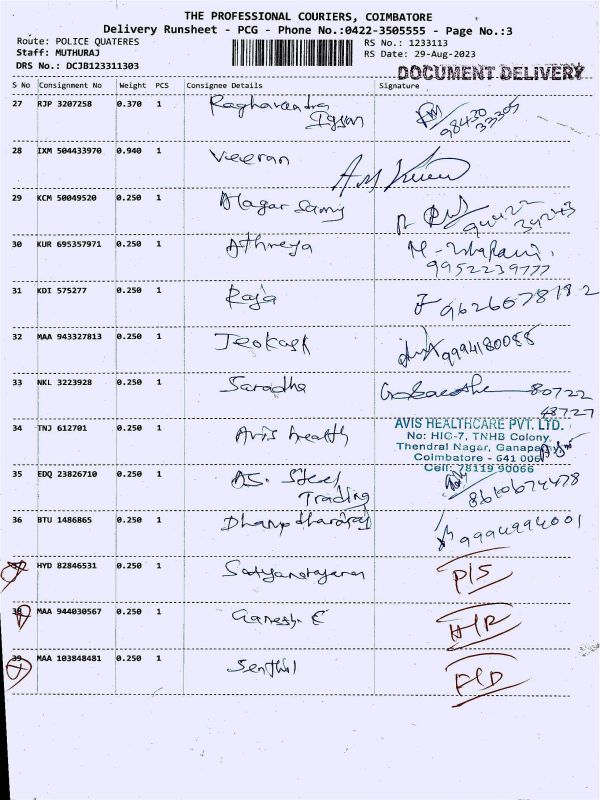 THE PROFESSIONAL COURIERS, COIMBATORE
Delivery Runsheet - PCG - Phone No.:0422-3505555 - Page No.:3
Route: POLICE QUATERES
RS No.: 1233113
Staff: MUTHURAJ
RS Date: 29-Aug-2023
DRS No.: DCJB123311303
DOCUMENT DELIVERY
S No Consignment No Weight PCS Consignee Details Signature
27 RJP 3207258 0.370 1 Raghavendra
98430
33305
28 IXM 504433970 0.940 1 Veeran
29 KCM 50049520 0.250 1 Alagar Samy
30 KUR 695357971 0.250 1 Athreya
9952239777
31 KDI 575277 0.250 1 Raja
9626678182
32 MAA 943327813 0.250 1
9994180088
33 NKL 3223928 0.250 1 Saradha
80722
48727
34 TNJ 612701 0.250 1 Avis health
AVIS HEALTHCARE PVT. LTD.
No: HIG-7, TNHB Colony,
Thendral Nagar,
Coimbatore - 641 006
Cell: 78119 90066
35 EDQ 23826710 0.250 1 AS. Steel
Trading
8610674478
36 BTU 1486865 0.250 1
9994994001
37 HYD 82846531 0.250 1 Satyanarayanan
P/S
38 MAA 944030567 0.250 1 Ganesh. E
39 MAA 103848481 0.250 1 Senthil